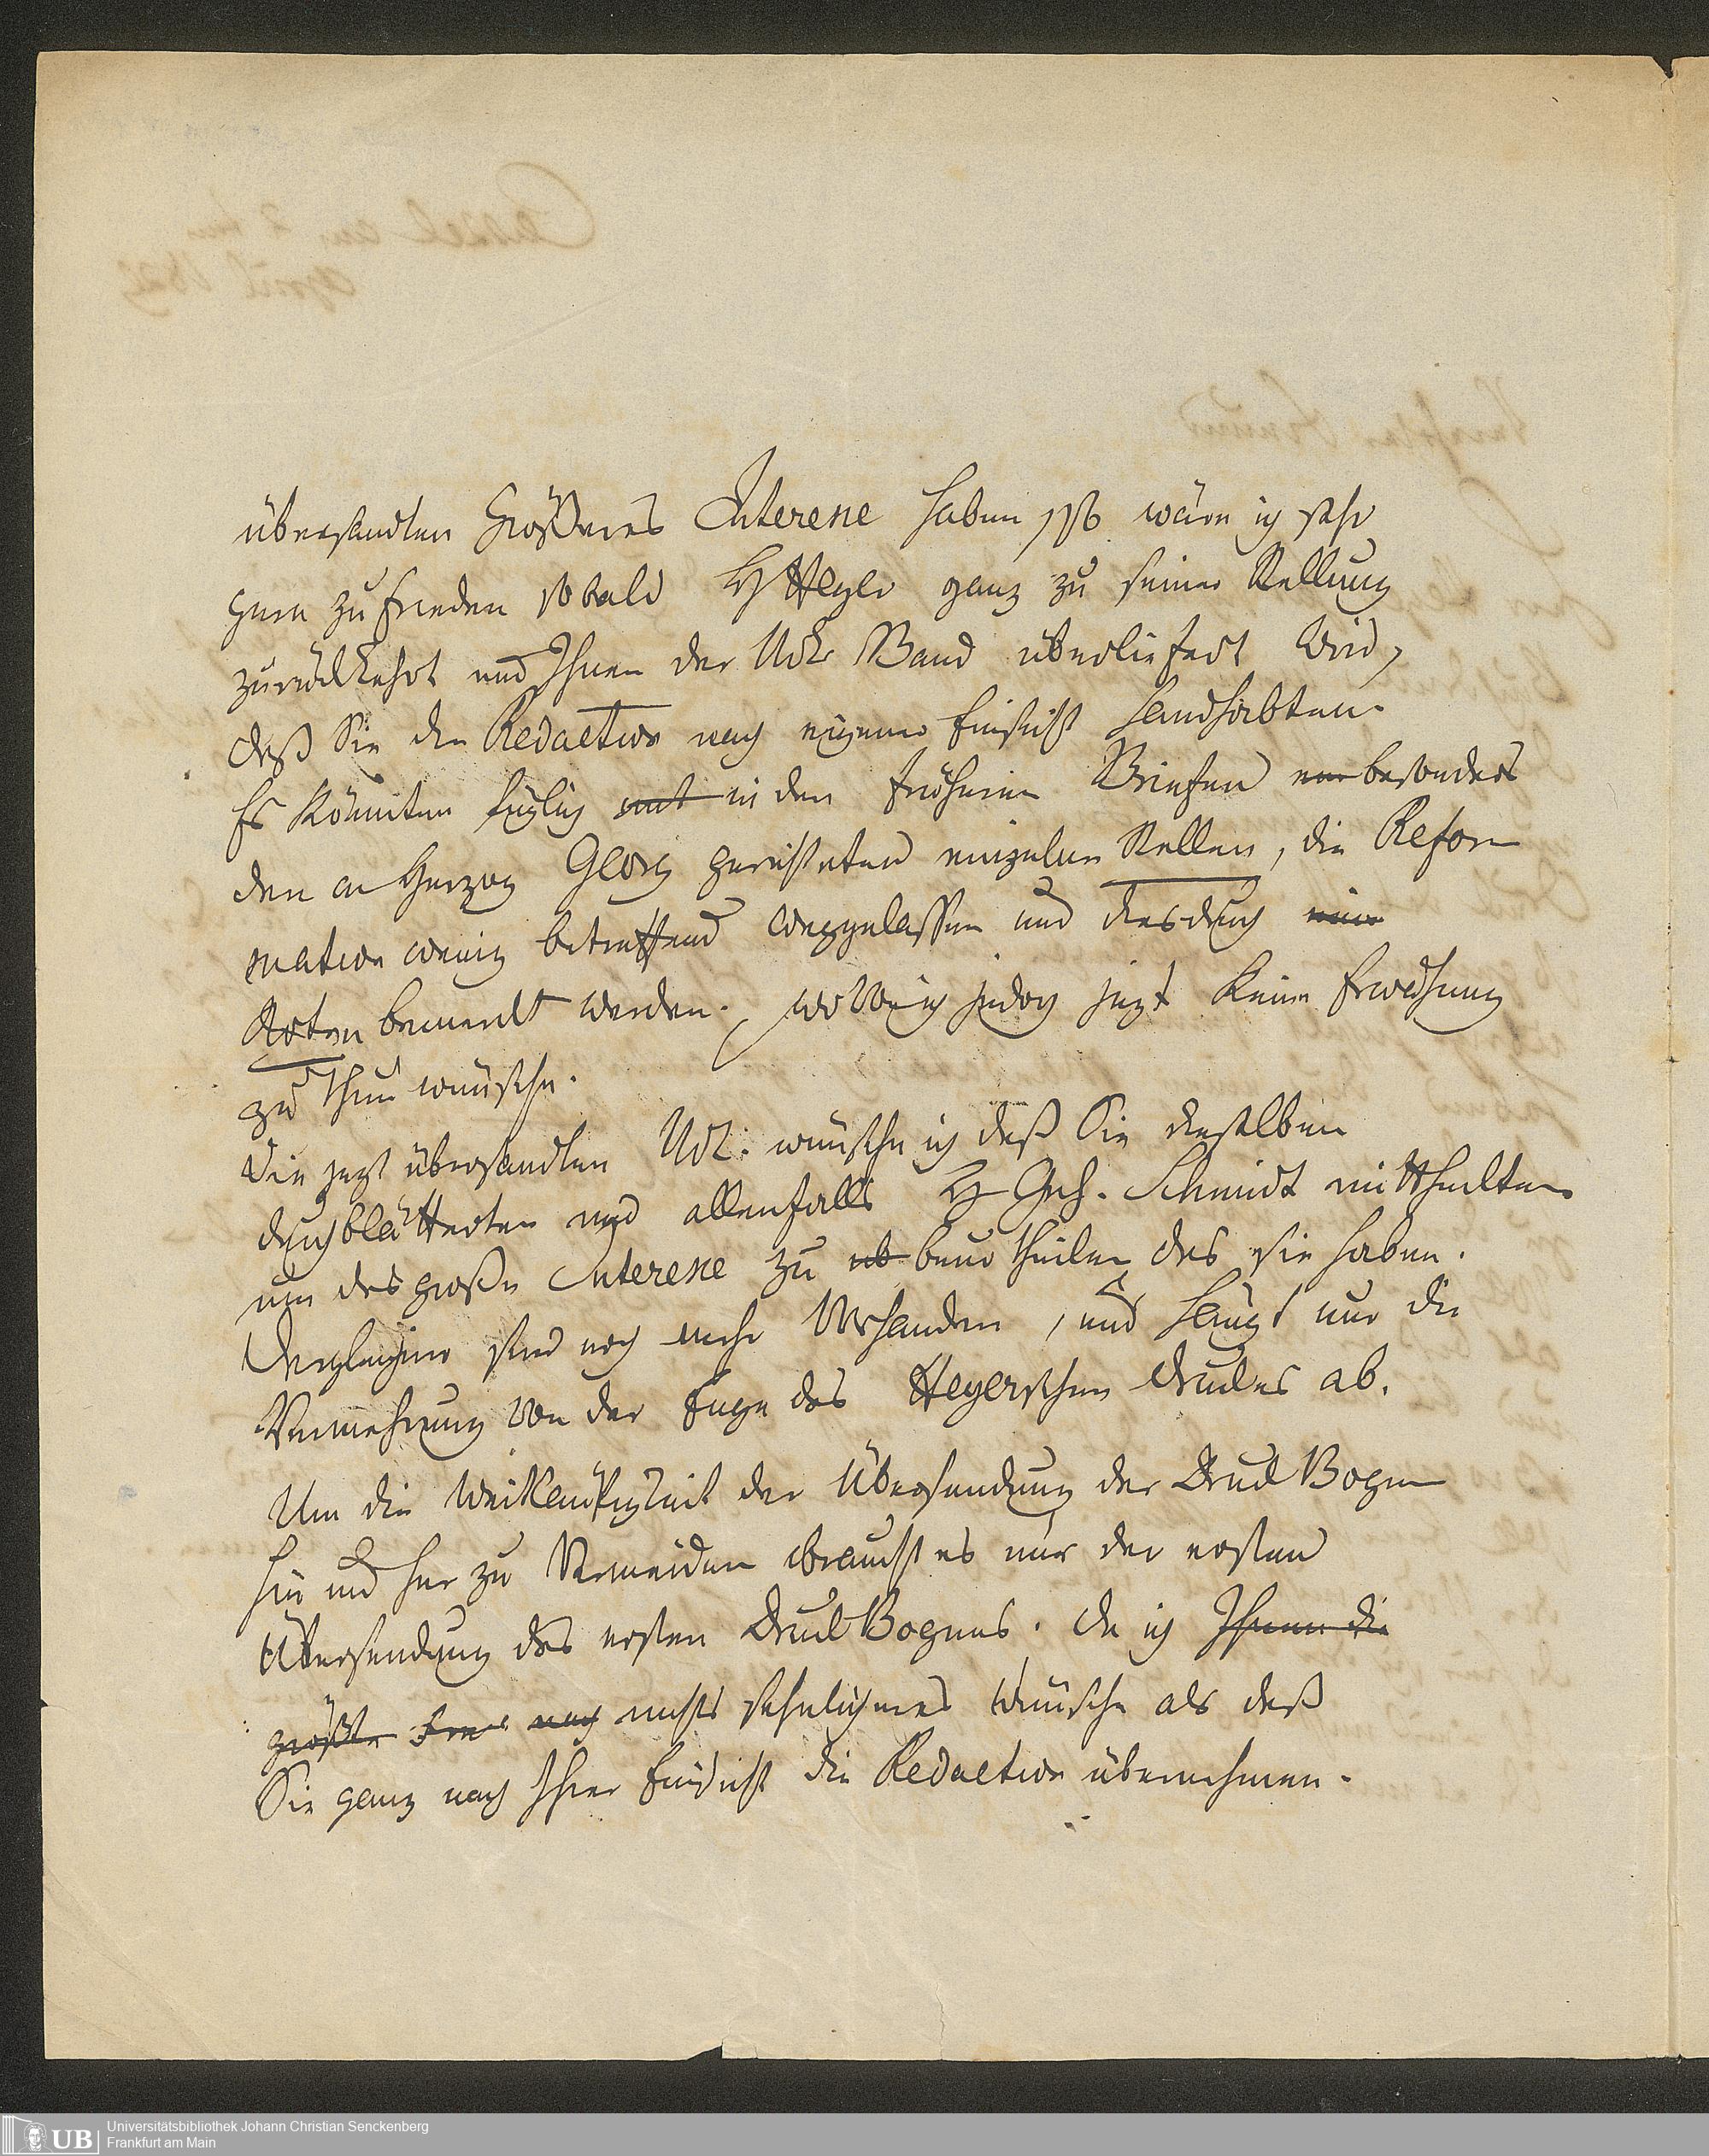 übersandten Größeres Interesse haben, so wäre ich sehr
gern zufrieden sobald H Heyer ganz zu seiner Stellung
zurückkehrt und Ihnen der Band überliefert wird,
daß Sie die Redaction nach eigener Einsicht handhabten.
Es könnten füglich mit in den früheren Briefen nur besonders
den an Herzog Georg gerichteten einzelne Stellen, die Refor
mation wenig betreffend weggelassen und dies durch
Noten bemerkt werden. wovon ich jedoch jezt keine Erwähnung
zu thun wünsche.
Die jezt übersandten Urk: wünsche ich daß Sie dieselben
durchblätterten und allenfalls H Geh. Schmidt mittheilten
um das große Interesse zu ob beurtheilen das sie haben.
Dergleichen sind noch mehr Vorhanden, und hängt nur die
Vermehrung von der Enge des Heyerschen Druckes ab.
Um die Weitläufigkeit der Übersendung der Druck Bogen
hin und her zu Vermeiden braucht es nur der ersten
Übersendung des ersten Druck Bogens. da ich Ihnen die
größte noch nichts sehnlicheres wünsche als daß
Sie ganz nach Ihrer Einsicht die Redaction übernehmen.
UB
Universitätsbibliothek Johann Christian Senckenberg
Frankfurt am Main